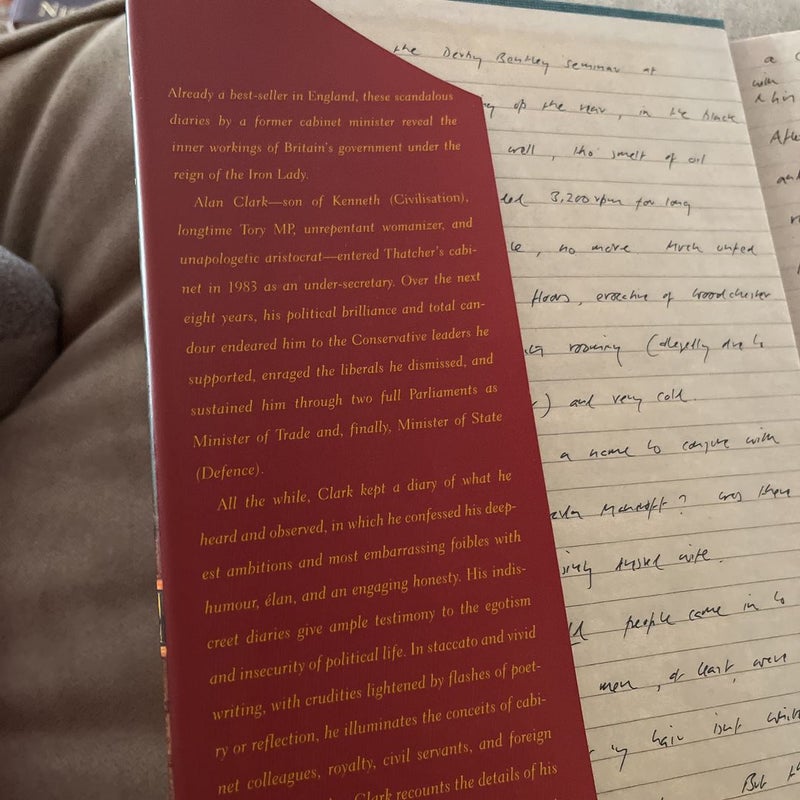 Already a best-seller in England, these scandalous
diaries by a former cabinet minister reveal the
inner workings of Britain's government under the
reign of the Iron Lady.
Alan Clark—son of Kenneth (Civilisation),
longtime Tory MP, unrepentant womanizer, and
unapologetic aristocrat—entered Thatcher's cabi-
net in 1983 as an under-secretary. Over the next
eight years, his political brilliance and total can-
dour endeared him to the Conservative leaders he
supported, enraged the liberals he dismissed, and
sustained him through two full Parliaments as
Minister of Trade and, finally, Minister of State
(Defence).
All the while, Clark kept a diary of what he
heard and observed, in which he confessed his deep-
est ambitions and most embarrassing foibles with
humour, élan, and an engaging honesty. His indis-
creet diaries give ample testimony to the egotism
and insecurity of political life. In staccato and vivid
writing, with crudities lightened by flashes of poet-
ry or reflection, he illuminates the conceits of cabi-
net colleagues, royalty, civil servants, and foreign
Clark recounts the details of his
the Derby Bentley seminar at
of the year, in the black
well, the smell of oil
3,200 rpm for long
, no more. Much united
floors, evocative of Woodchester
roaring (allegedly due to
) and very cold.
a name to conjure with
? was there
wife.
people came in to
men, at least, were
hair isn't
But
a
with
After